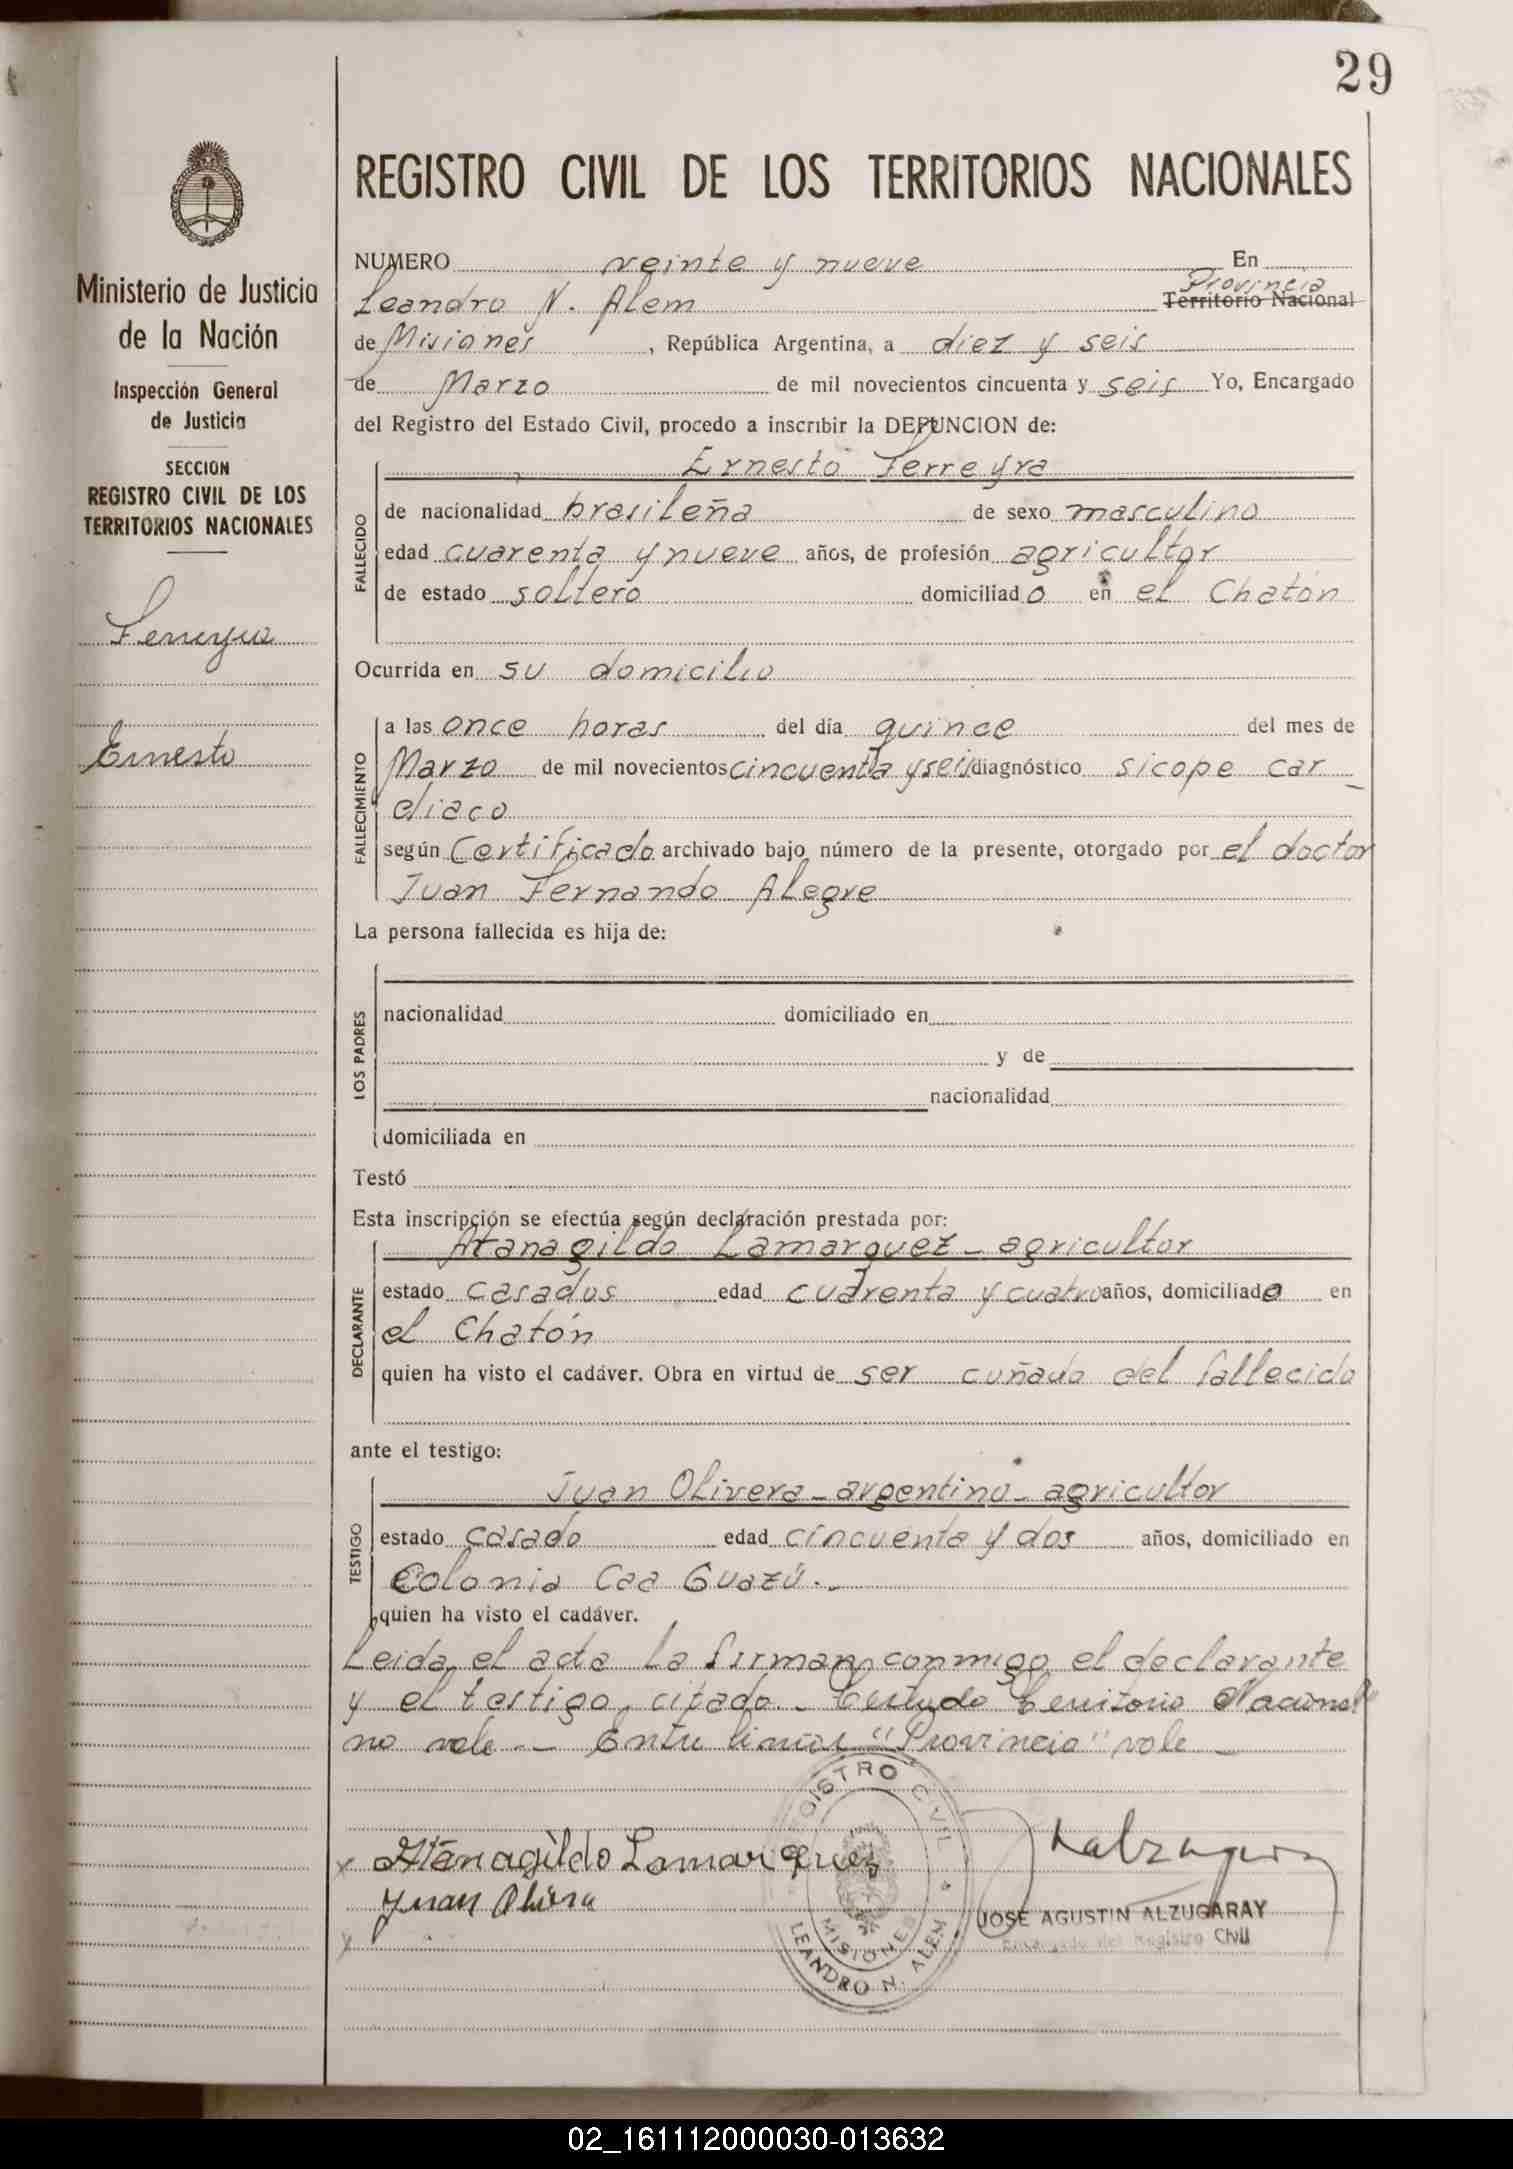 29
REGISTRO CIVIL DE LOS TERRITORIOS NACIONALES
Ministerio de Justicia
de la Nación
Inspección General
de Justicia
SECCION
REGISTRO CIVIL DE LOS
TERRITORIOS NACIONALES
Ferreyra
Ernesto
NUMERO veinte y nueve En
Provincia
Leandro N. Alem Territorio Nacional
de Misiones, República Argentina, a diez y seis
de Marzo de mil novecientos cincuenta y seis Yo, Encargado
del Registro del Estado Civil, procedo a inscribir la DEFUNCION de:
Ernesto Ferreyra
FALLECIDO
de nacionalidad brasileña de sexo masculino
edad cuarenta y nueve años, de profesión agricultor
de estado soltero domiciliado en el Chatón
Ocurrida en su domicilio
FALLECIMIENTO
a las once horas del día quince del mes de
Marzo de mil novecientos cincuenta y seis diagnóstico sicope car_
diaco
según Certificado archivado bajo número de la presente, otorgado por el doctor
Juan Fernando Alegre
La persona fallecida es hija de:
LOS PADRES
nacionalidad domiciliado en
y de
nacionalidad
domiciliada en
Testó
Esta inscripción se efectúa según declaración prestada por:
Atanagildo Lamarquez - agricultor
DECLARANTE
estado casados edad cuarenta y cuatro años, domiciliado en
el Chatón
quien ha visto el cadáver. Obra en virtud de ser cuñado del fallecido
ante el testigo:
Juan Olivera - argentino - agricultor
TESTIGO
estado casado edad cincuenta y dos años, domiciliado en
Colonia Caa Guazú.-
quien ha visto el cadáver.
Leida el acta la firman conmigo el declarante
y el testigo citado - Testado Territorio Nacional
no vale.- Entre lineas "Provincia" vale -
x Atanagildo Lamarquez
Juan Olivera
x
REGISTRO CIVIL
MISIONES
LEANDRO N. ALEM
JOSE AGUSTIN ALZUGARAY
Encargado del Registro Civil
02_161112000030-013632